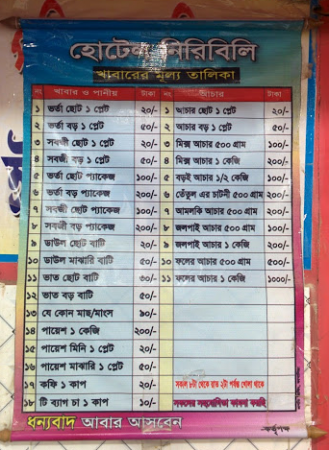 হোটেল নিরিবিলি
খাবারের মূল্য তালিকা
নং খাবার ও পানীয় টাকা নং আচার টাকা
১ ভর্তা ছোট ১ প্লেট ২০/- ১ আচার ছোট ১ প্লেট ২০/-
২ ভর্তা বড় ১ প্লেট ৫০/- ২ আচার বড় ১ প্লেট ৫০/-
৩ সবজী ছোট ১ প্লেট ২০/- ৩ মিক্স আচার ৫০০ গ্রাম ১০০/-
৪ সবজী বড় ১ প্লেট ৫০/- ৪ মিক্স আচার ১ কেজি ২০০/-
৫ ভর্তা ছোট প্যাকেজ ১০০/- ৫ বড়ই আচার ১/২ কেজি ১০০/-
৬ ভর্তা বড় প্যাকেজ ২০০/- ৬ তেঁতুল এর চাটনী ৫০০ গ্রাম ২০০/-
৭ সবজী ছোট প্যাকেজ ১০০/- ৭ আমলকি আচার ৫০০ গ্রাম ২০০/-
৮ সবজী বড় প্যাকেজ ২০০/- ৮ জলপাই আচার ৫০০ গ্রাম ১০০/-
৯ ডাউল ছোট বাটি ২০/- ৯ জলপাই আচার ১ কেজি ২০০/-
১০ ডাউল মাঝারি বাটি ৫০/- ১০ ফলের আচার ৫০০ গ্রাম ৫০০/-
১১ ভাত ছোট বাটি ৩০/- ১১ ফলের আচার ১ কেজি ১০০০/-
১২ ভাত বড় বাটি ৫০/-
১৩ যে কোন মাছ/মাংস ৯০/-
১৪ পায়েশ ১ কেজি ২০০/-
১৫ পায়েশ মিনি ১ প্লেট ২০/-
১৬ পায়েশ মাঝারি ১ প্লেট ৫০/-
১৭ কফি ১ কাপ ২০/- সকাল ৮টা থেকে রাত ২টা পর্যন্ত খোলা থাকে
১৮ টি ব্যাগ চা ১ কাপ ১০/- সকলের সহযোগিতা কামনা করছি
ধন্যবাদ আবার আসবেন